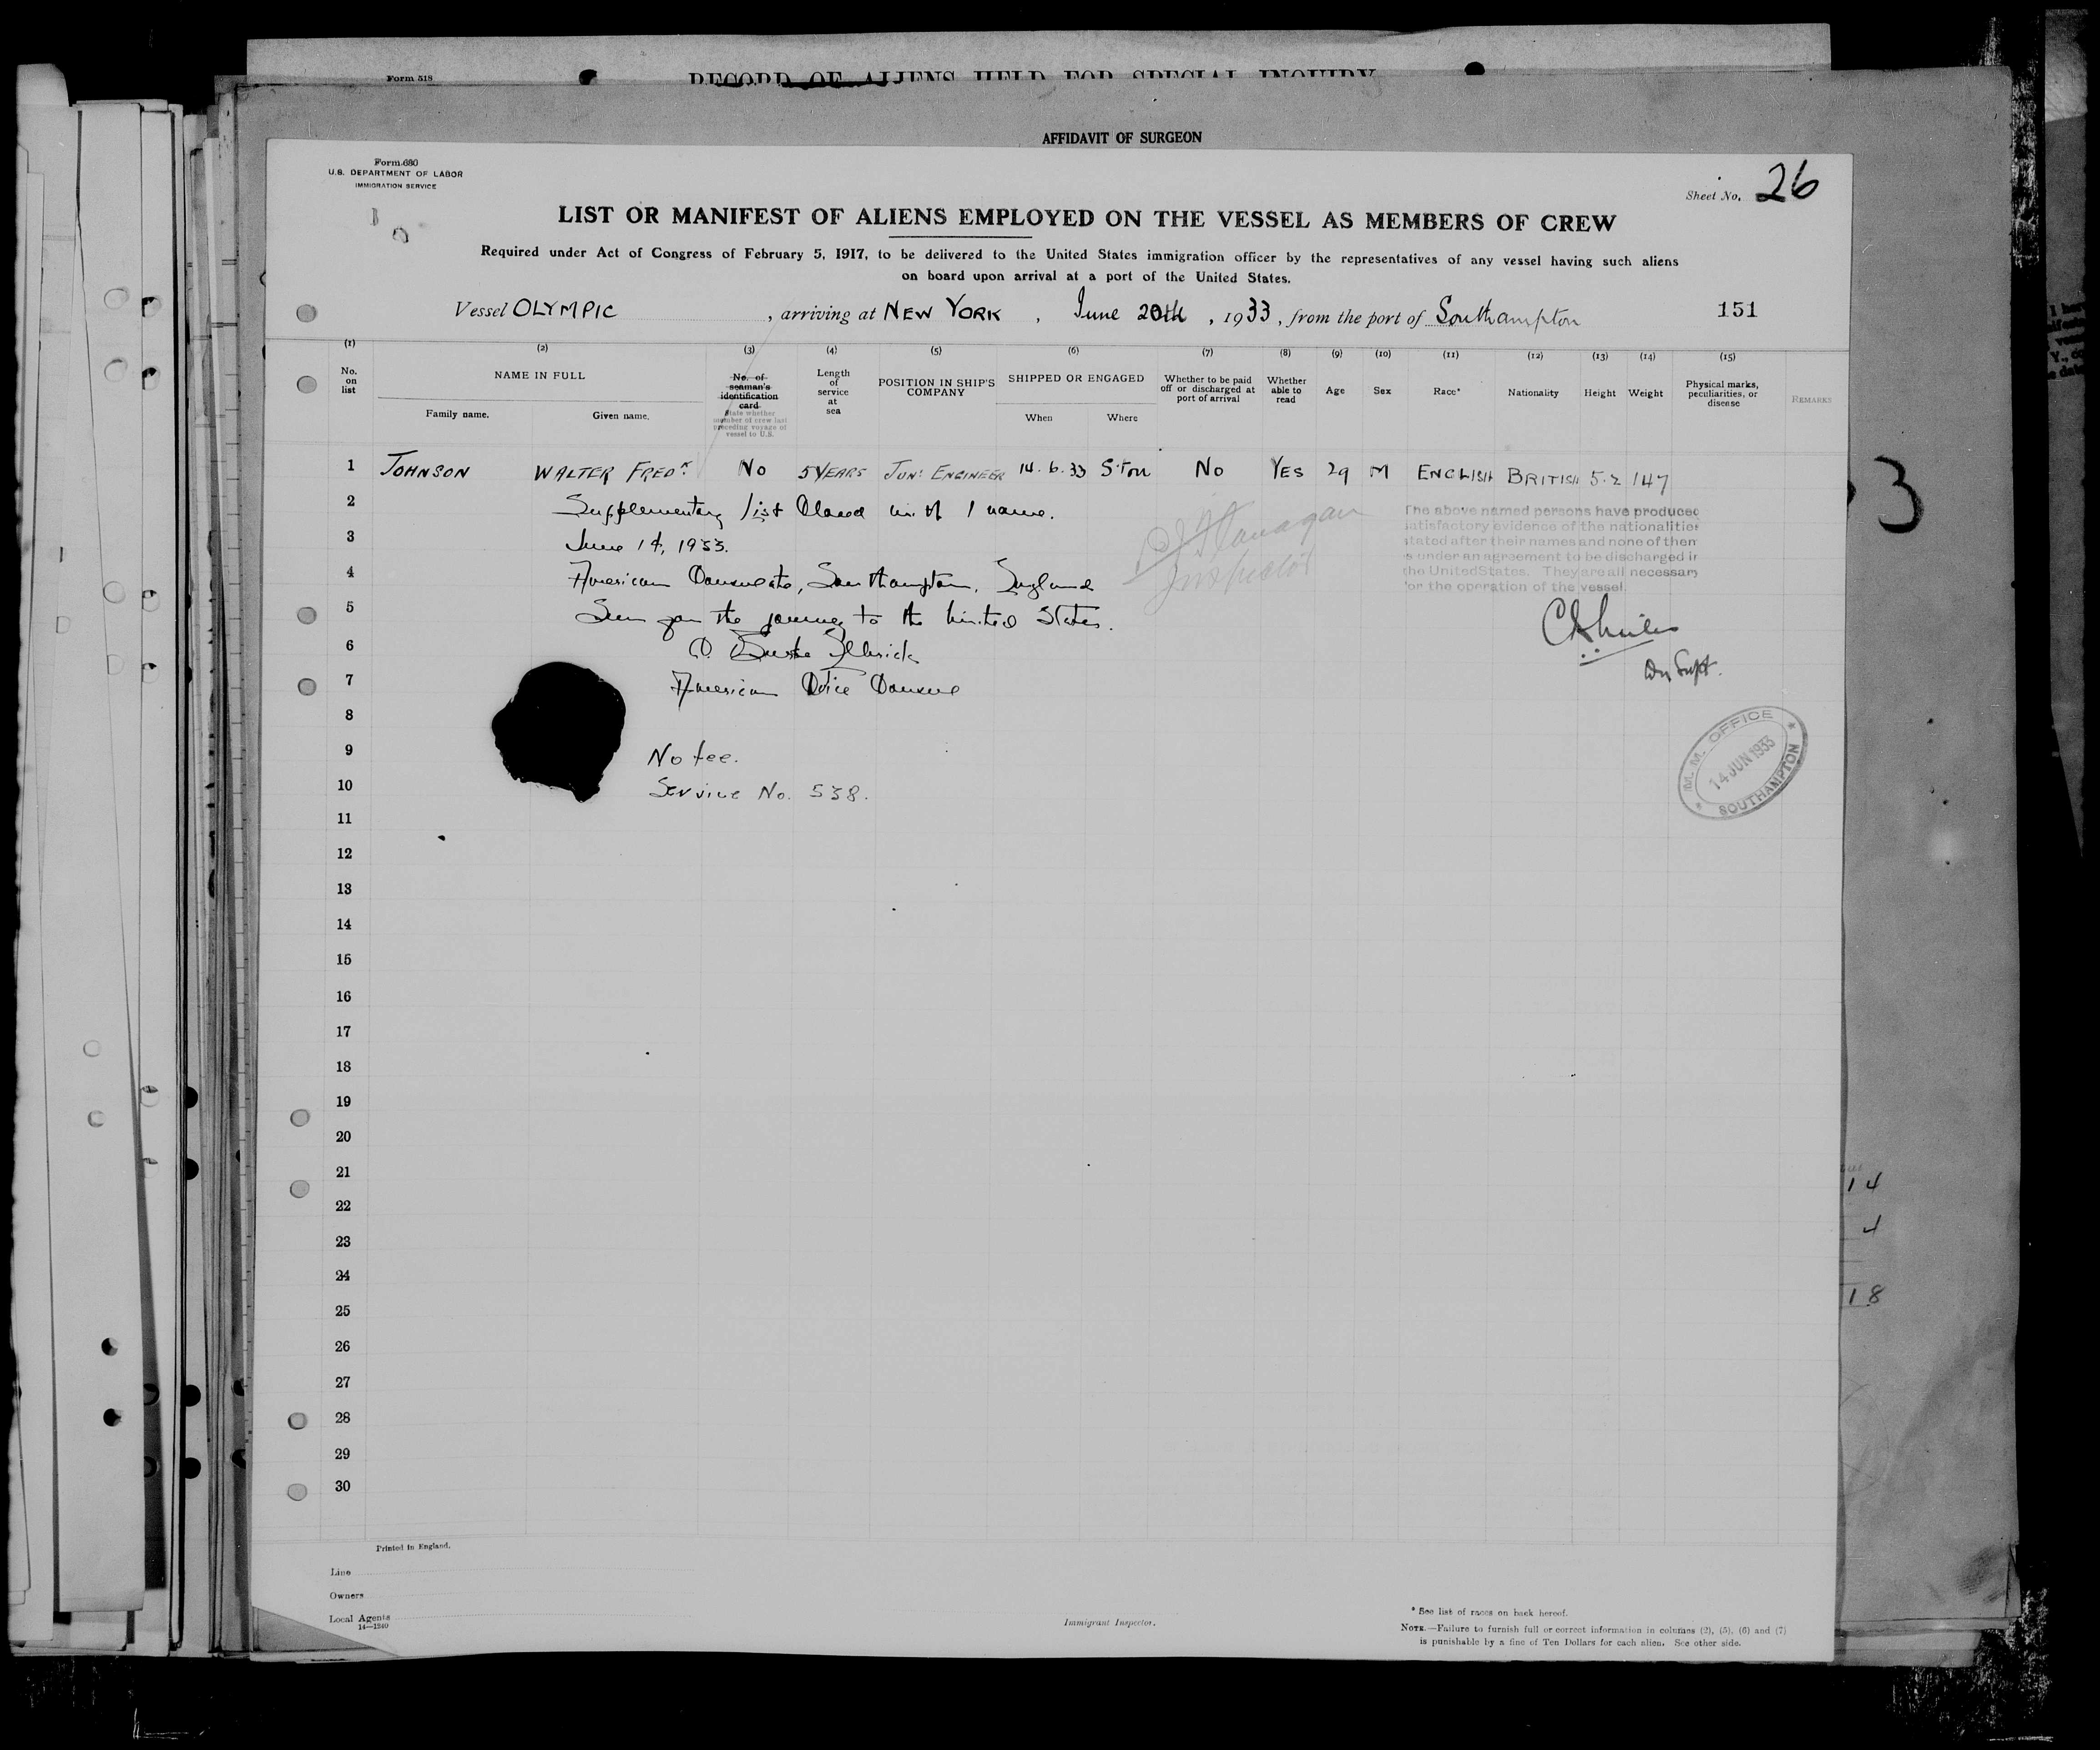 Form 518
RECORD OF ALIENS HELD FOR SPECIAL INQUIRY
AFFIDAVIT OF SURGEON
Form 680
U.S. DEPARTMENT OF LABOR
IMMIGRATION SERVICE
Sheet No. 26
LIST OR MANIFEST OF ALIENS EMPLOYED ON THE VESSEL AS MEMBERS OF CREW
Required under Act of Congress of February 5, 1917, to be delivered to the United States immigration officer by the representatives of any vessel having such aliens
on board upon arrival at a port of the United States.
Vessel OLYMPIC, arriving at NEW YORK, June 20th, 1933, from the port of Southampton 151
(1) (2) (3) (4) (5) (6) (7) (8) (9) (10) (11) (12) (13) (14) (15)
No. on list
NAME IN FULL
Family name. Given name.
No. of seaman's identification card
State whether member of crew last preceding voyage of vessel to U.S.
Length of service at sea
POSITION IN SHIP'S COMPANY
SHIPPED OR ENGAGED
When Where
Whether to be paid off or discharged at port of arrival
Whether able to read
Age
Sex
Race*
Nationality
Height
Weight
Physical marks, peculiarities, or disease
REMARKS
1 JOHNSON WALTER FREDK No 5 YEARS JUNR ENGINEER 14.6.33 S'TON No YES 29 M ENGLISH BRITISH 5.2 147
2 Supplementary list closed with 1 name.
3 June 14, 1933.
4 American Consulate, Southampton, England
5 Seen for the journey to the United States.
6
7 American Vice Consul
8
9 No fee.
10 Service No. 538.
11
12
13
14
15
16
17
18
19
20
21
22
23
24
25
26
27
28
29
30
Inspector
The above named persons have produced
satisfactory evidence of the nationalities
stated after their names and none of them
is under an agreement to be discharged in
the United States. They are all necessary
for the operation of the vessel.
M.M. OFFICE
14 JUN 1933
SOUTHAMPTON
3
14
4
18
Printed in England.
Line
Owners
Local Agents
14—1240
Immigrant Inspector.
* See list of races on back hereof.
NOTE.—Failure to furnish full or correct information in columns (2), (5), (6) and (7)
is punishable by a fine of Ten Dollars for each alien. See other side.